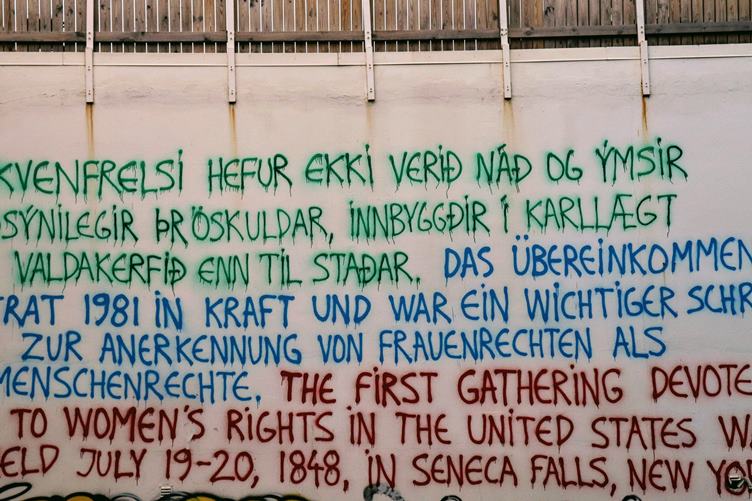 KVENFRELSI HEFUR EKKI VERIÐ NÁÐ OG ÝMSIR
ÓSÝNILEGIR ÞRÖSKULDAR, INNBYGGÐIR Í KARLLÆGT
VALDAKERFIÐ ENN TIL STAÐAR. DAS ÜBEREINKOMMEN
TRAT 1981 IN KRAFT UND WAR EIN WICHTIGER SCHR
ZUR ANERKENNUNG VON FRAUENRECHTEN ALS
MENSCHENRECHTE. THE FIRST GATHERING DEVOTE
TO WOMEN'S RIGHTS IN THE UNITED STATES WA
ELD JULY 19-20, 1848, IN SENECA FALLS, NEW YO